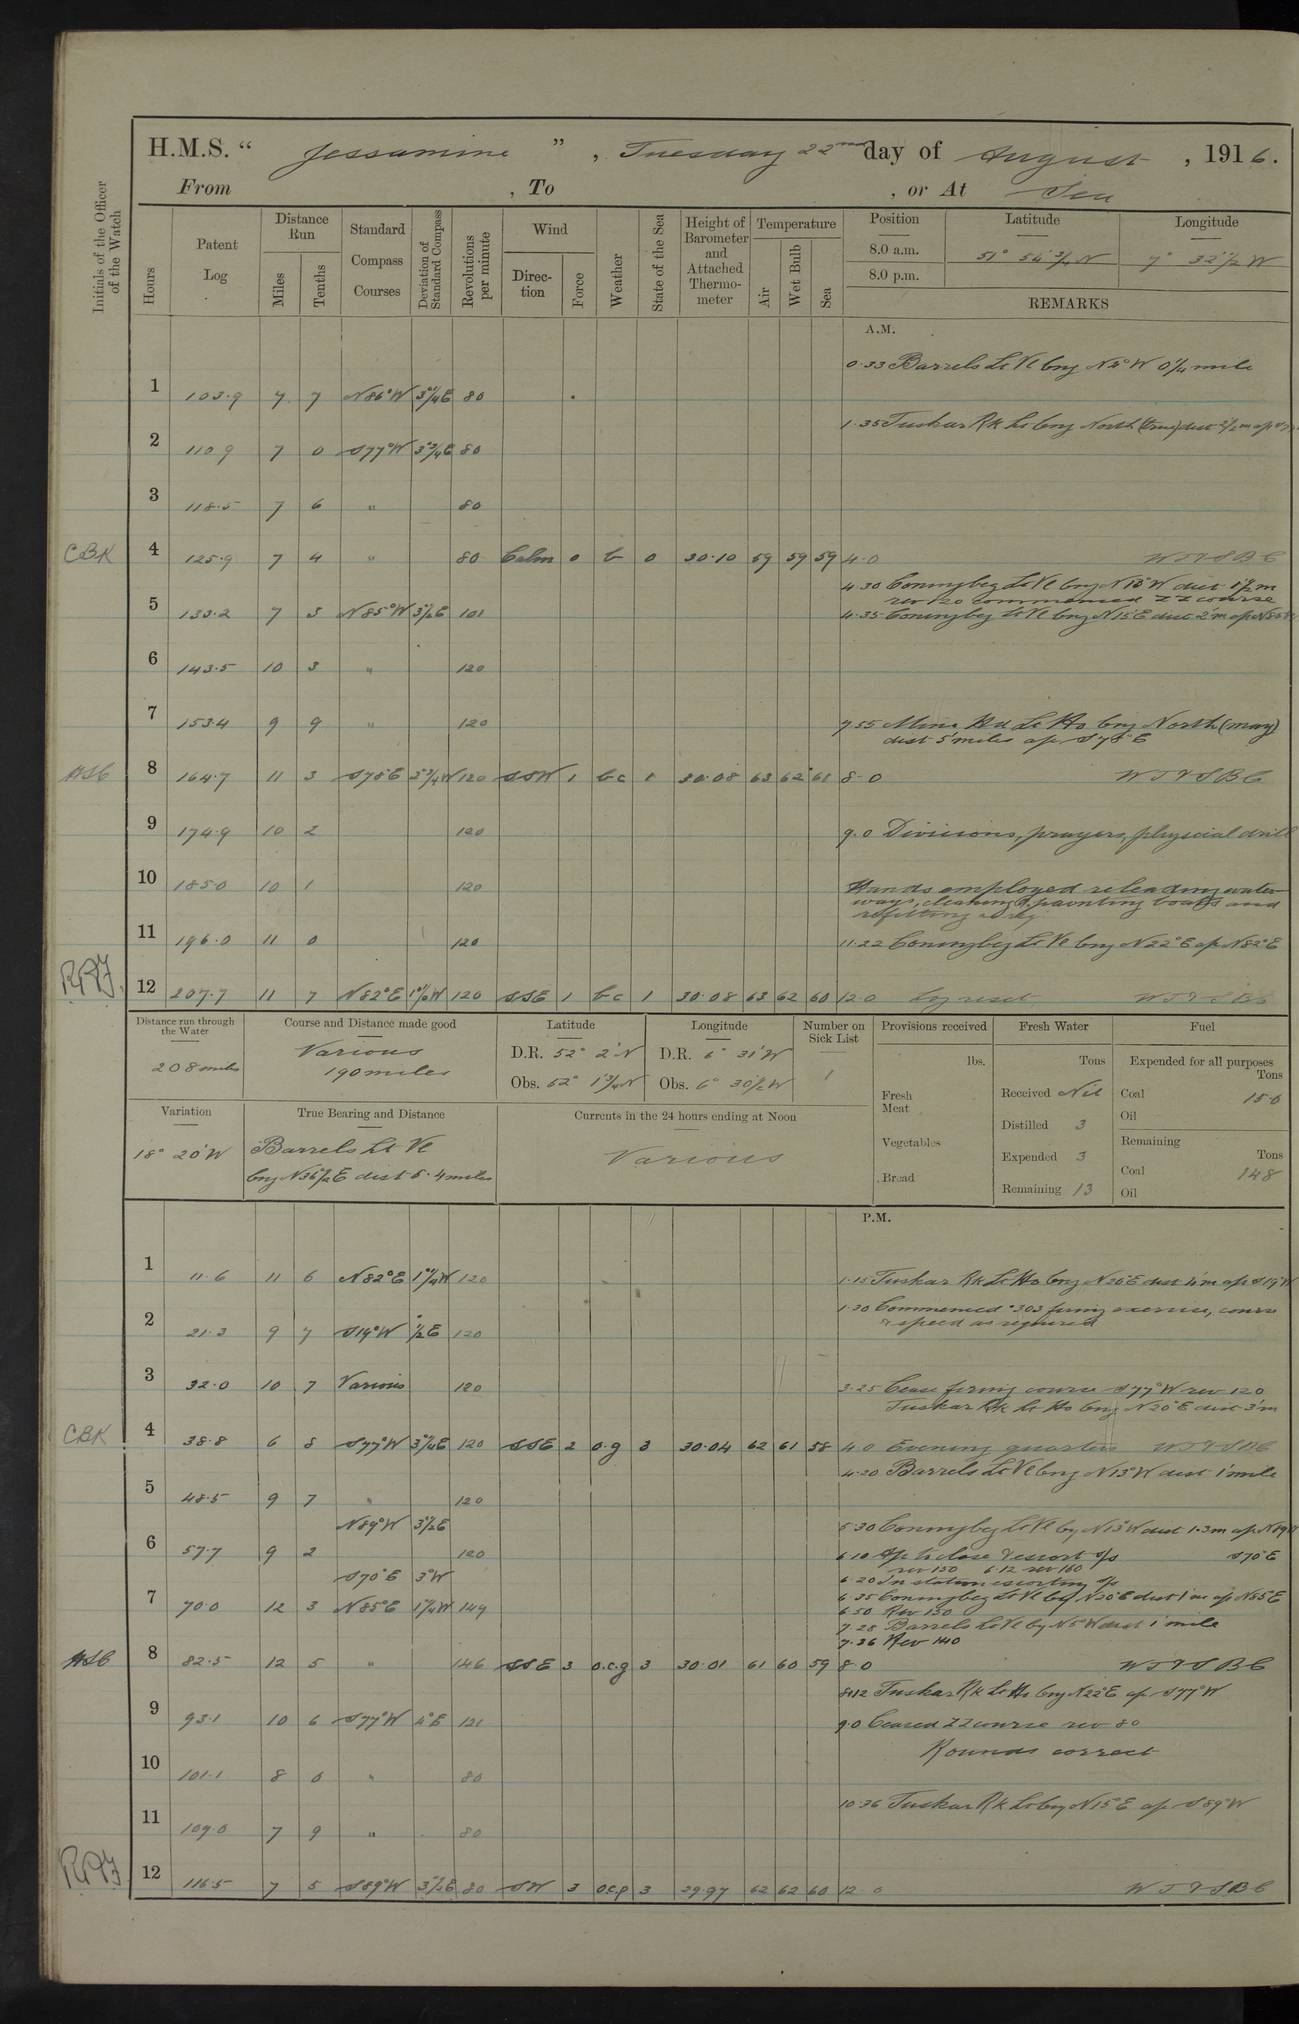 H.M.S. “ Jessamine ” , Tuesday 22nd day of August , 1916.
From , To , or At Sea
Initials of the Officer of the Watch
Hours
Patent Log
Distance Run
Miles
Tenths
Standard Compass Courses
Deviation of Standard Compass
Revolutions per minute
Wind
Direction
Force
Weather
State of the Sea
Height of Barometer and Attached Thermometer
Temperature
Air
Wet Bulb
Sea
Position Latitude Longitude
8.0 a.m. 51° 54 3/4' N 7° 32 1/2' W
8.0 p.m.
REMARKS
A.M.
0.33 Barrels Lt Vl brg N2°W 0 1/4 mile
1 103.9 7 7 N86°W 3 1/4 E 80
1.35 Tuskar Rk Lt brg North (true) dist 2 1/2 m
2 110.9 7 0 S77°W 3 3/4 E 80
3 118.5 7 6 " 80
CBK 4 125.9 7 4 " 80 Calm 0 b 0 30.10 59 59 59 4.0 WTVSBC
4.30 Coningbeg Lt Vl brg N18°W dist 1 1/2 m
rev 120 commenced ZZ course
5 133.2 7 3 N85°W 3 1/2 E 101 4.35 Coningbeg Lt Vl brg N15°E dist 2'm a/c N85°W
6 143.5 10 3 " 120
7 153.4 9 9 " 120 7.55 Mine Hd Lt Ho brg North (mag)
dist 5 miles a/c S78°E
HSC 8 164.7 11 3 S78°E 3 3/4 W 120 SSW 1 bc 1 30.08 63 62 61 8.0 WTVSBC
9 174.9 10 2 120 9.0 Divisions, prayers, physical drill
10 185.0 10 1 120 Hands employed releading water-
ways, cleaning & painting boats and
refitting
11 196.0 11 0 120 11.22 Coningbeg Lt Vl brg N22°E a/c N82°E
12 207.7 11 7 N82°E 1 1/2 W 120 SSE 1 bc 1 30.08 63 62 60 12.0 log reset WTVSBC
Distance run through the Water
208 miles
Course and Distance made good
Various
190 miles
Latitude
D.R. 52° 2' N
Obs. 52° 1 3/4 N
Longitude
D.R. 6° 31' W
Obs. 6° 30 1/2 W
Number on Sick List
1
Provisions received
lbs.
Fresh Meat
Vegetables
Bread
Fresh Water
Tons
Received Nil
Distilled 3
Expended 3
Remaining 13
Fuel
Expended for all purposes
Tons
Coal 15.0
Oil
Remaining
Tons
Coal 148
Oil
Variation
18° 20' W
True Bearing and Distance
Barrels Lt Vl
brg N36 1/2 E dist 5.4 miles
Currents in the 24 hours ending at Noon
Various
P.M.
1 11.6 11 6 N82°E 1 1/4 W 120 1.15 Tuskar Rk Lt Ho brg N20°E dist 4'm a/c S19°W
1.30 Commenced .303 firing exercise, course
& speed as required
2 21.3 9 7 S19°W 1/2 E 120
3 32.0 10 7 Various 120 3.25 Cease firing course S77°W rev 120
Tuskar Rk Lt Ho brg N20°E dist 3'm
CBK 4 38.8 6 8 S77°W 3 3/4 E 120 SSE 2 o.g 3 30.04 62 61 58 4.0 Evening quarters WTVSBC
4.20 Barrels Lt Vl brg N13°W dist 1 mile
5 48.5 9 7 " 120
N89°W 3 1/2 E 5.30 Coningbeg Lt Vl by N13°W dist 1.3 m a/c N89°W
6 57.7 9 2 120 6.10 A/c to close & escort s/s S70°E
rev 150 6.12 rev 160
S70°E 3°W 6.20 In station escorting s/s
7 70.0 12 3 N85°E 1 1/4 W 149 6.35 Coningbeg Lt Vl by N20°E dist 1'm a/c N85°E
6.50 Rev 150
7.28 Barrels Lt Vl by N5°W dist 1 mile
7.36 Rev 140
HSC 8 82.5 12 5 " 146 SSE 3 o.c.g 3 30.01 61 60 59 8.0 WTVSBC
8.12 Tuskar Rk Lt Ho brg N22°E a/c S77°W
9 93.1 10 6 S77°W 4°E 121 9.0 Ceased ZZ course rev 80
Rounds correct
10 101.1 8 0 " 80
10.36 Tuskar Rk Lt brg N15°E a/c S89°W
11 109.0 7 9 " 80
12 116.5 7 5 S89°W 3 1/2 E 80 SW 3 ocp 3 29.97 62 62 60 12.0 WTVSBC